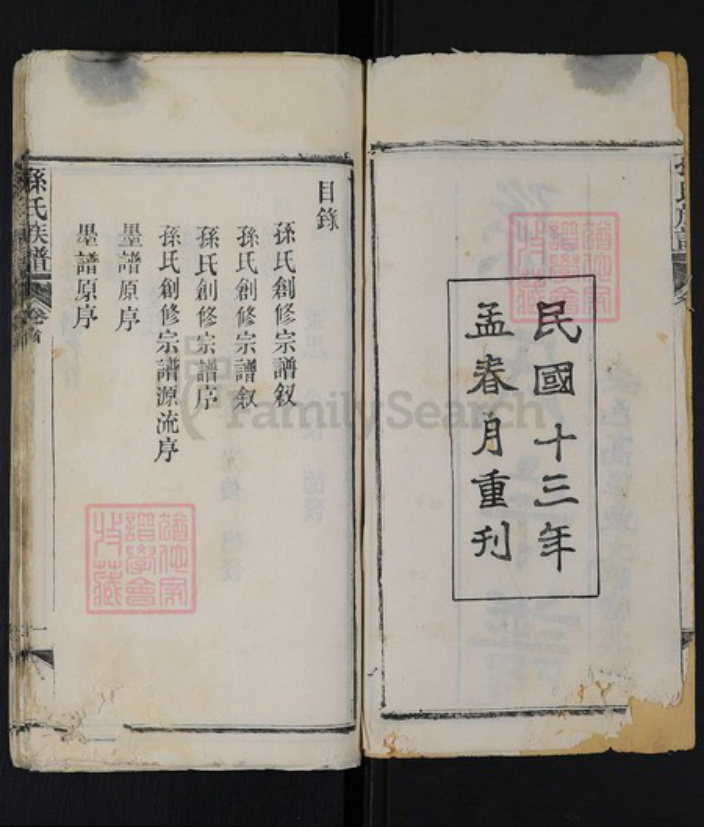 民國十三年
孟春月重刊
目錄
孫氏創修宗譜叙
孫氏創修宗譜叙
孫氏創修宗譜序
孫氏創修宗譜源流序
墨譜原序
墨譜原序
孫氏族譜
卷首
一
FamilySearch